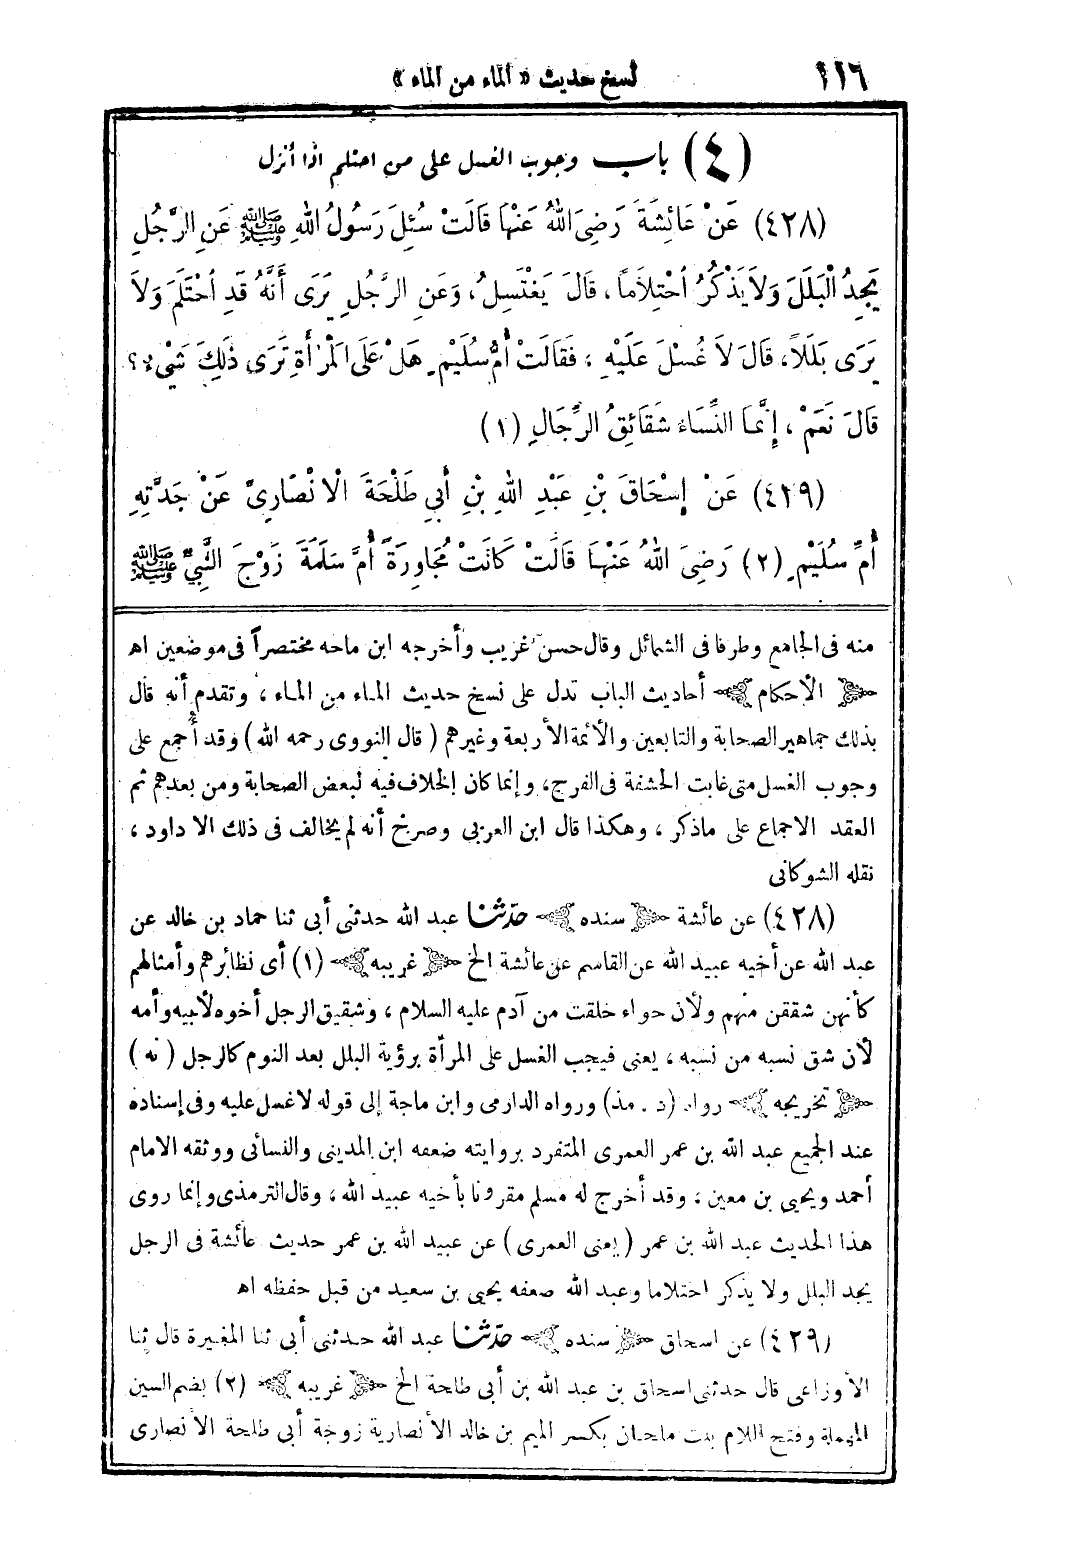 ١١٦ نسخ حديث « الماء من الماء »
(٤) باب وجوب الغسل على من احتلم اذا أنزل
(٤٢٨) عَنْ عَائِشَةَ رَضِيَ اللهُ عَنْهَا قَالَتْ سُئِلَ رَسُولُ اللهِ ﷺ عَنِ الرَّجُلِ
يَجِدُ الْبَلَلَ وَلاَ يَذْكُرُ احْتِلاَماً، قَالَ يَغْتَسِلُ، وَعَنِ الرَّجُلِ يَرَى أَنَّهُ قَدِ احْتَلَمَ وَلاَ
يَرَى بَلَلاً، قَالَ لاَ غُسْلَ عَلَيْهِ ، فَقَالَتْ أُمُّ سُلَيْمٍ هَلْ عَلَى الْمَرْأَةِ تَرَى ذَلِكَ شَيْءٌ ؟
قَالَ نَعَمْ ، إِنَّمَا النِّسَاءُ شَقَائِقُ الرِّجَالِ (١)
(٤٢٩) عَنْ إِسْحَاقَ بْنِ عَبْدِ اللهِ بْنِ أَبِي طَلْحَةَ الْأَنْصَارِيِّ عَنْ جَدَّتِهِ
أُمِّ سُلَيْمٍ (٢) رَضِيَ اللهُ عَنْهَا قَالَتْ كَانَتْ مُجَاوِرَةً أُمَّ سَلَمَةَ زَوْجَ النَّبِيِّ ﷺ
منه فى الجامع وطرفا فى الشمائل وقال حسن غريب وأخرجه ابن ماجه مختصراً فى موضعين اه
﴿ الأحكام ﴾ أحاديث الباب تدل على نسخ حديث الماء من الماء ، وتقدم أنه قال
بذلك جماهير الصحابة والتابعين والأئمة الأربعة وغيرهم ( قال النووى رحمه الله ) وقد أجمع على
وجوب الغسل متى غابت الحشفة فى الفرج، وإنما كان الخلاف فيه لبعض الصحابة ومن بعدهم ثم
انعقد الاجماع على ماذكر ، وهكذا قال ابن العربى وصرح أنه لم يخالف فى ذلك الا داود ،
نقله الشوكانى
(٤٢٨) عن عائشة ﴿ سنده ﴾ حدّثنا عبد الله حدثنى أبى ثنا حماد بن خالد عن
عبد الله عن أخيه عبيد الله عن القاسم عن عائشة الخ ﴿ غريبه ﴾ (١) أى نظائرهم وأمثالهم
كأنهن شققن منهم ولأن حواء خلقت من آدم عليه السلام ، وشقيق الرجل أخوه لأبيه وأمه
لأن شق نسبه من نسبه ، يعنى فيجب الغسل على المرأة برؤية البلل بعد النوم كالرجل ( نه )
﴿ تخريجه ﴾ رواه (د . مذ) ورواه الدارمى وابن ماجة إلى قوله لا غسل عليه وفى إسناده
عند الجميع عبد الله بن عمر العمرى المتفرد بروايته ضعفه ابن المدينى والنسائى ووثقه الامام
أحمد ويحيى بن معين ، وقد أخرج له مسلم مقرونا بأخيه عبيد الله ، وقال الترمذى وإنما روى
هذا الحديث عبد الله بن عمر ( يعنى العمرى ) عن عبيد الله بن عمر حديث عائشة فى الرجل
يجد البلل ولا يذكر احتلاما وعبد الله ضعفه يحيى بن سعيد من قبل حفظه اه
(٤٢٩) عن اسحاق ﴿ سنده ﴾ حدّثنا عبد الله حدثنى أبى ثنا المغيرة قال ثنا
الأوزاعى قال حدثنى اسحاق بن عبد الله بن أبى طلحة الخ ﴿ غريبه ﴾ (٢) بضم السين
المهملة وفتح اللام بنت ملحان بكسر الميم بن خالد الأنصارية زوجة أبى طلحة الأنصارى